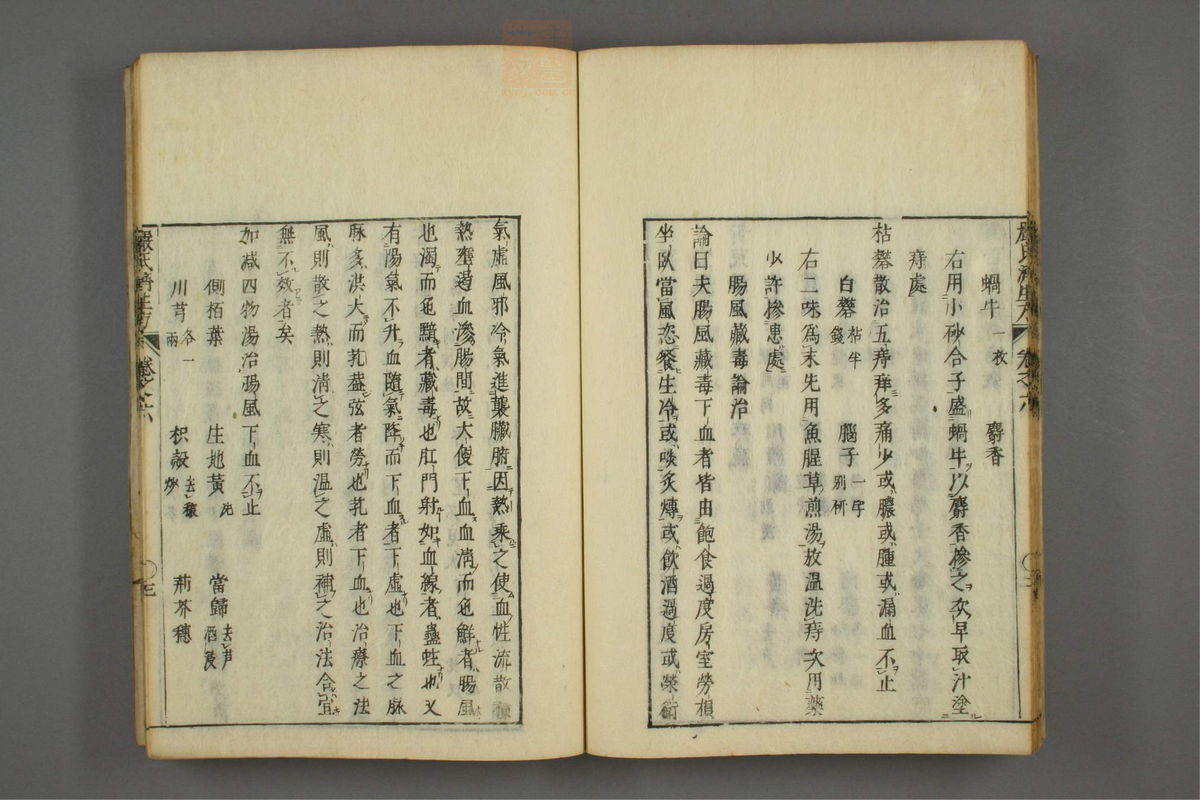 蝸牛一枚　麝香
右用小砂合子盛蝸牛以麝香摻之次早取汁塗
痔處
枯礬散治五痔痒多痛少或膿或腫或漏血不止
白礬枯半錢　腦子一字別研
右二味為末先用魚腥草煎湯放温洗痔次用藥
少許摻患處
腸風臟毒論治
論曰夫腸風臟毒下血者皆由飽食過度房室勞損
坐臥當風恣餐生冷或啖炙煿或飲酒過度或榮衛
氣虛風邪冷氣進襲臟腑因熱乘之使血性流散積
熱壅遏血滲腸間故大便下血血清而色鮮者腸風
也濁而色黯者臟毒也肛門射如血線者蟲蛀也又
有陽氣不升血隨氣降而下血者下虛也下血之脉
脉多洪大而芤蓋弦者勞也芤者下血也治療之法
風則散之熱則清之寒則温之虛則補之治法合宜
無不效者矣
加減四物湯治腸風下血不止
側栢葉　生地黃洗　當歸去芦酒浸
川芎各一兩　枳殼去穰炒　荊芥穗
嚴氏濟生方　卷之六